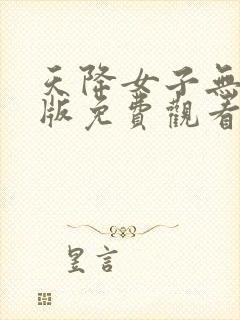 天降女子無
版免費觀看
昱言